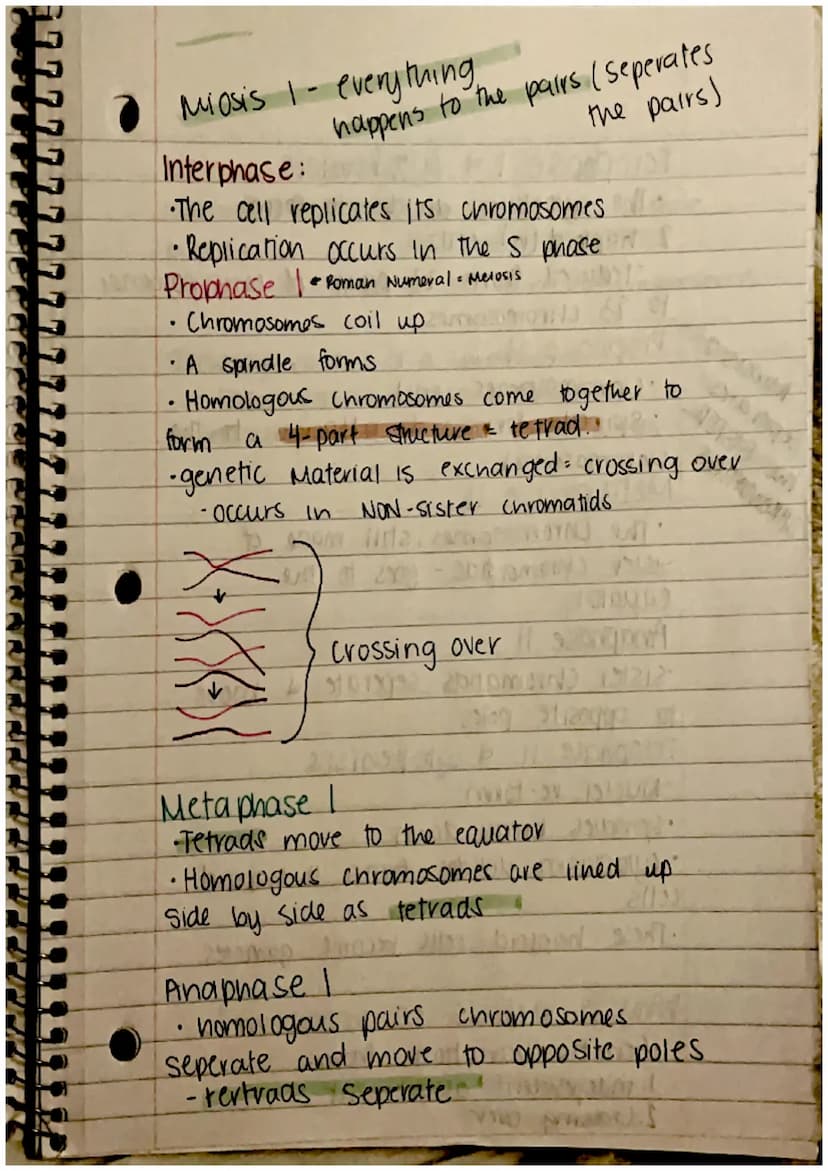 Miosis 1 - everything
happens to the pairs (seperates
the pairs)
Interphase:
·The cell replicates its chromosomes
· Replication occurs in the S phase
Prophase 1 • Roman Numeral = Meiosis
· Chromosomes coil up
· A spindle forms
· Homologous chromosomes come together to
form a 4-part structure = tetrad.
·genetic Material is exchanged = crossing over
- occurs in NON-sister chromatids
crossing over
Metaphase 1
·Tetrads move to the equator
· Homologous chromosomes are lined up
side by side as tetrads
Anaphase 1
· homologous pairs chromosomes
seperate and move to opposite poles
- rertrads seperate